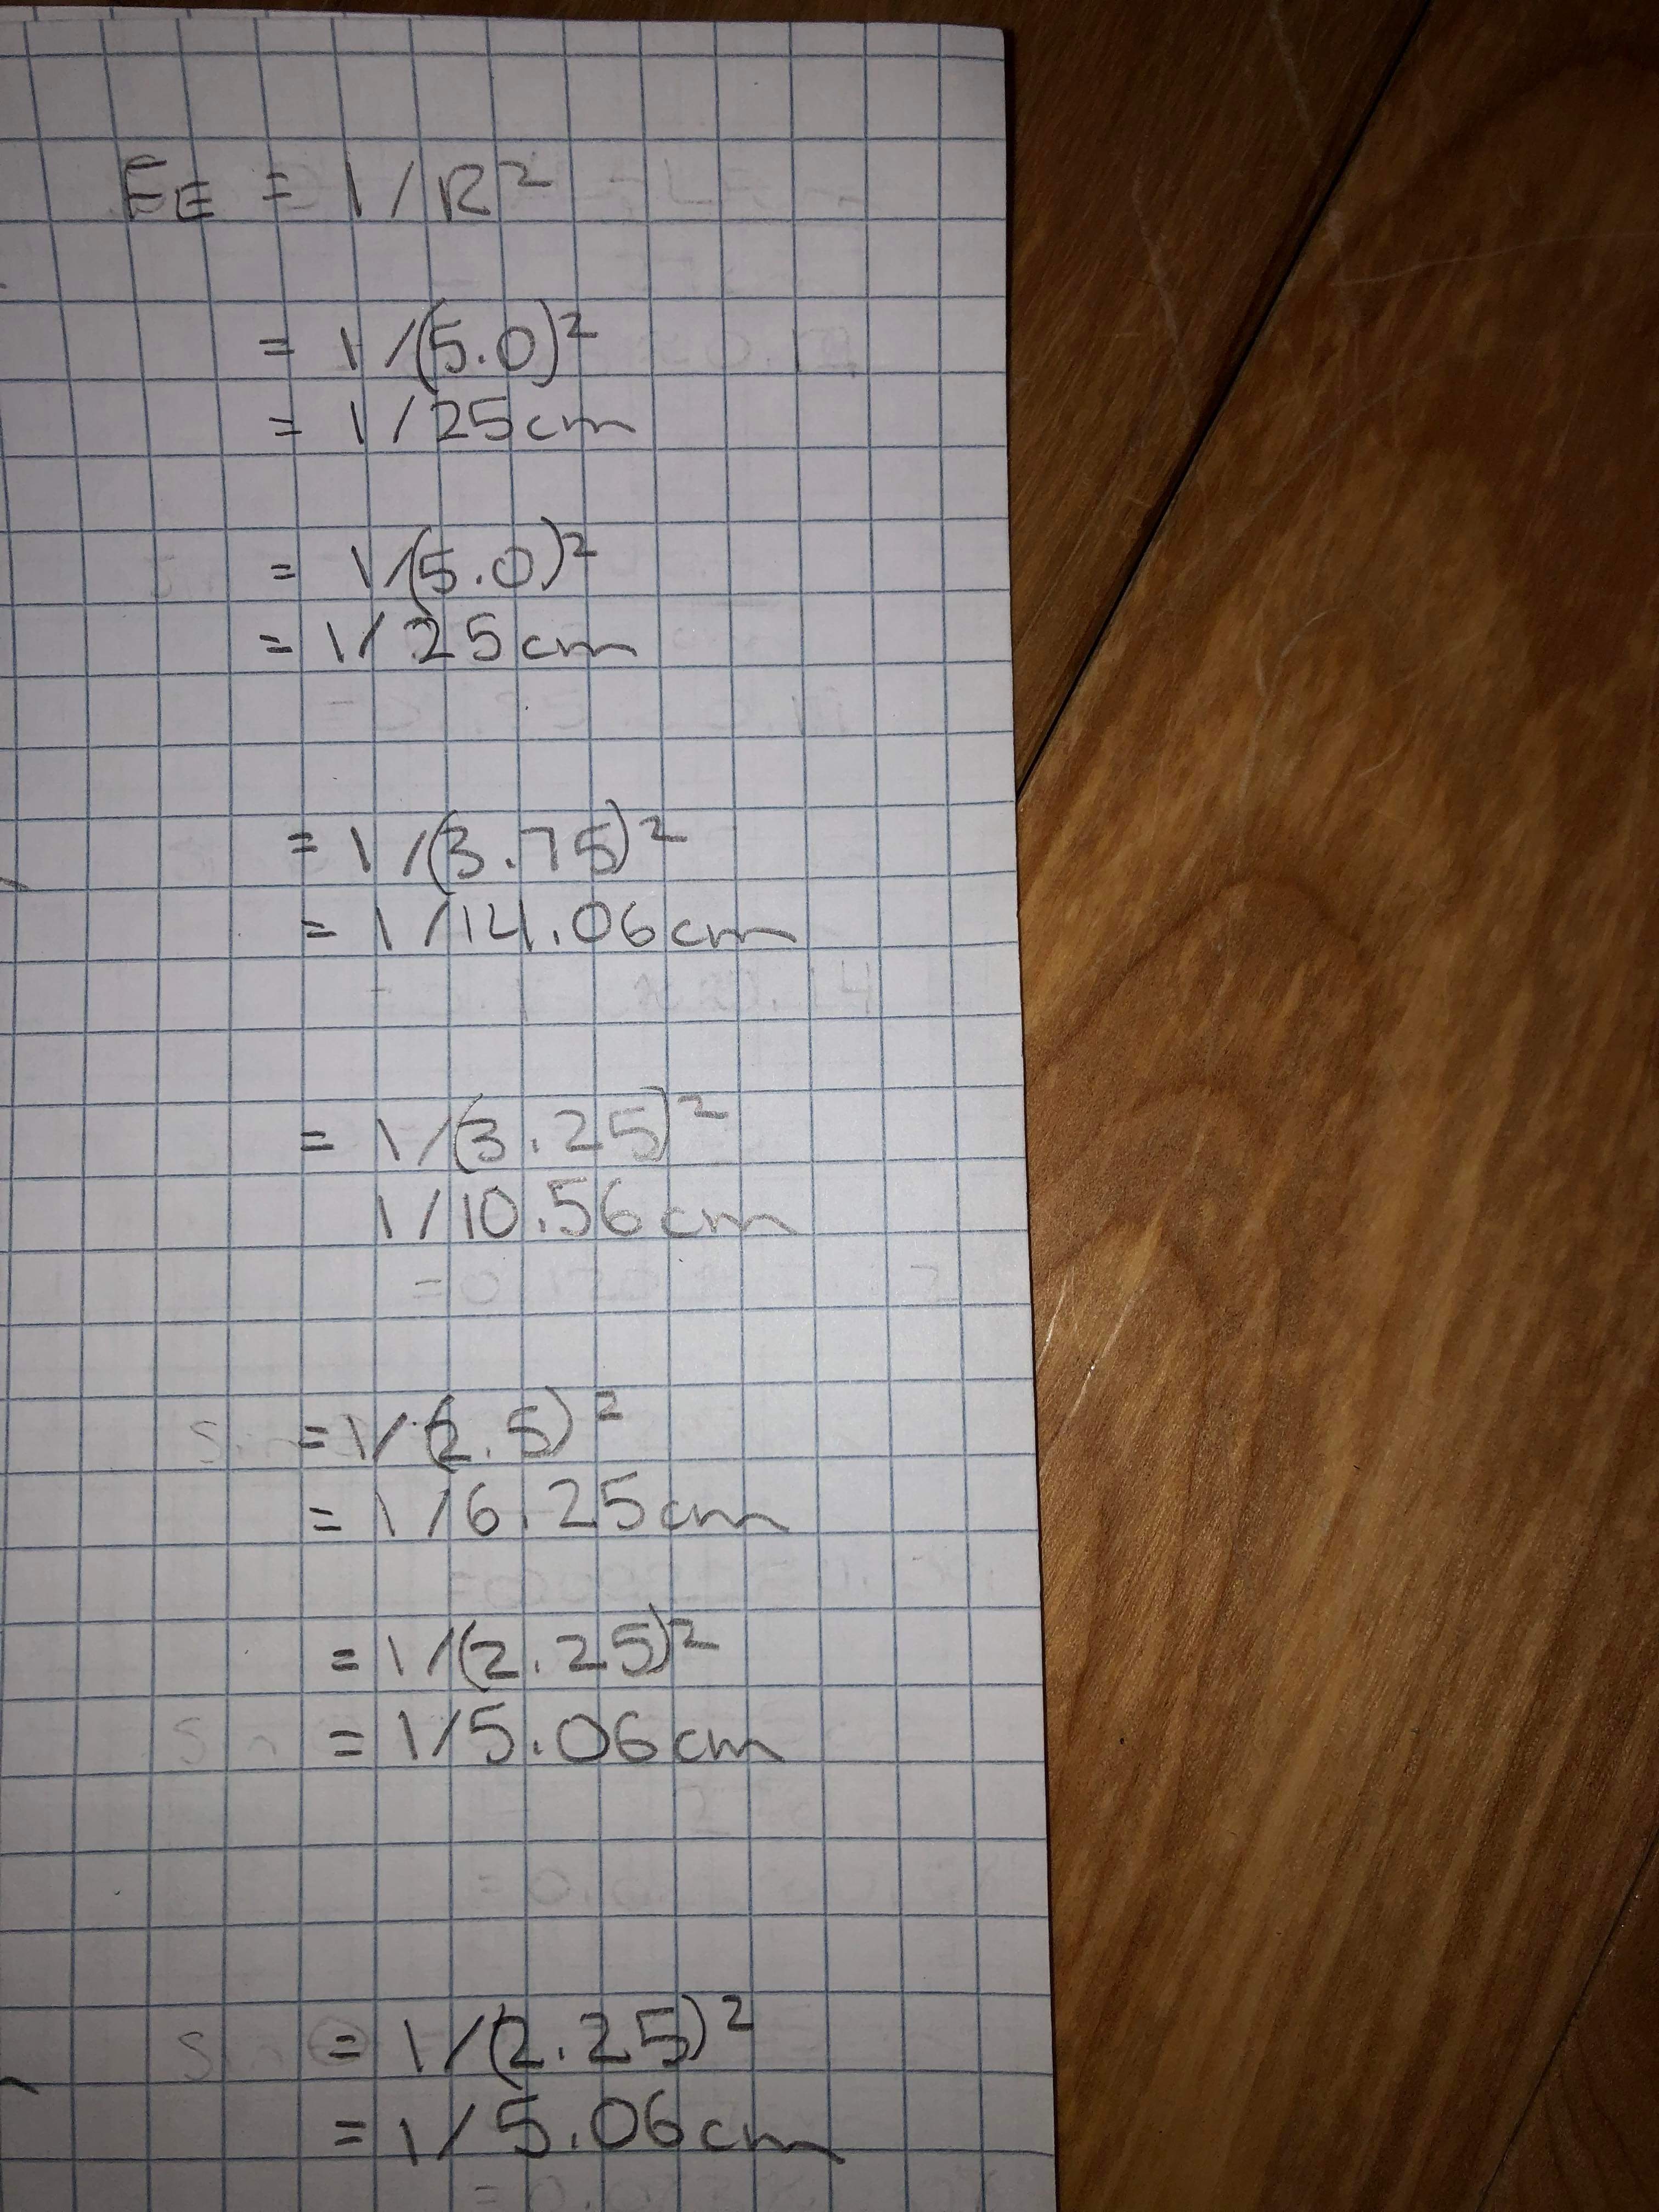 FE = 1/R²
= 1/(5.0)²
= 1/25cm
= 1/(5.0)²
= 1/25cm
= 1/(3.75)²
= 1/14.06cm
= 1/(3.25)²
1/10.56cm
= 1/(2.5)²
= 1/6.25cm
= 1/(2.25)²
= 1/5.06cm
= 1/(2.25)²
= 1/5.06cm